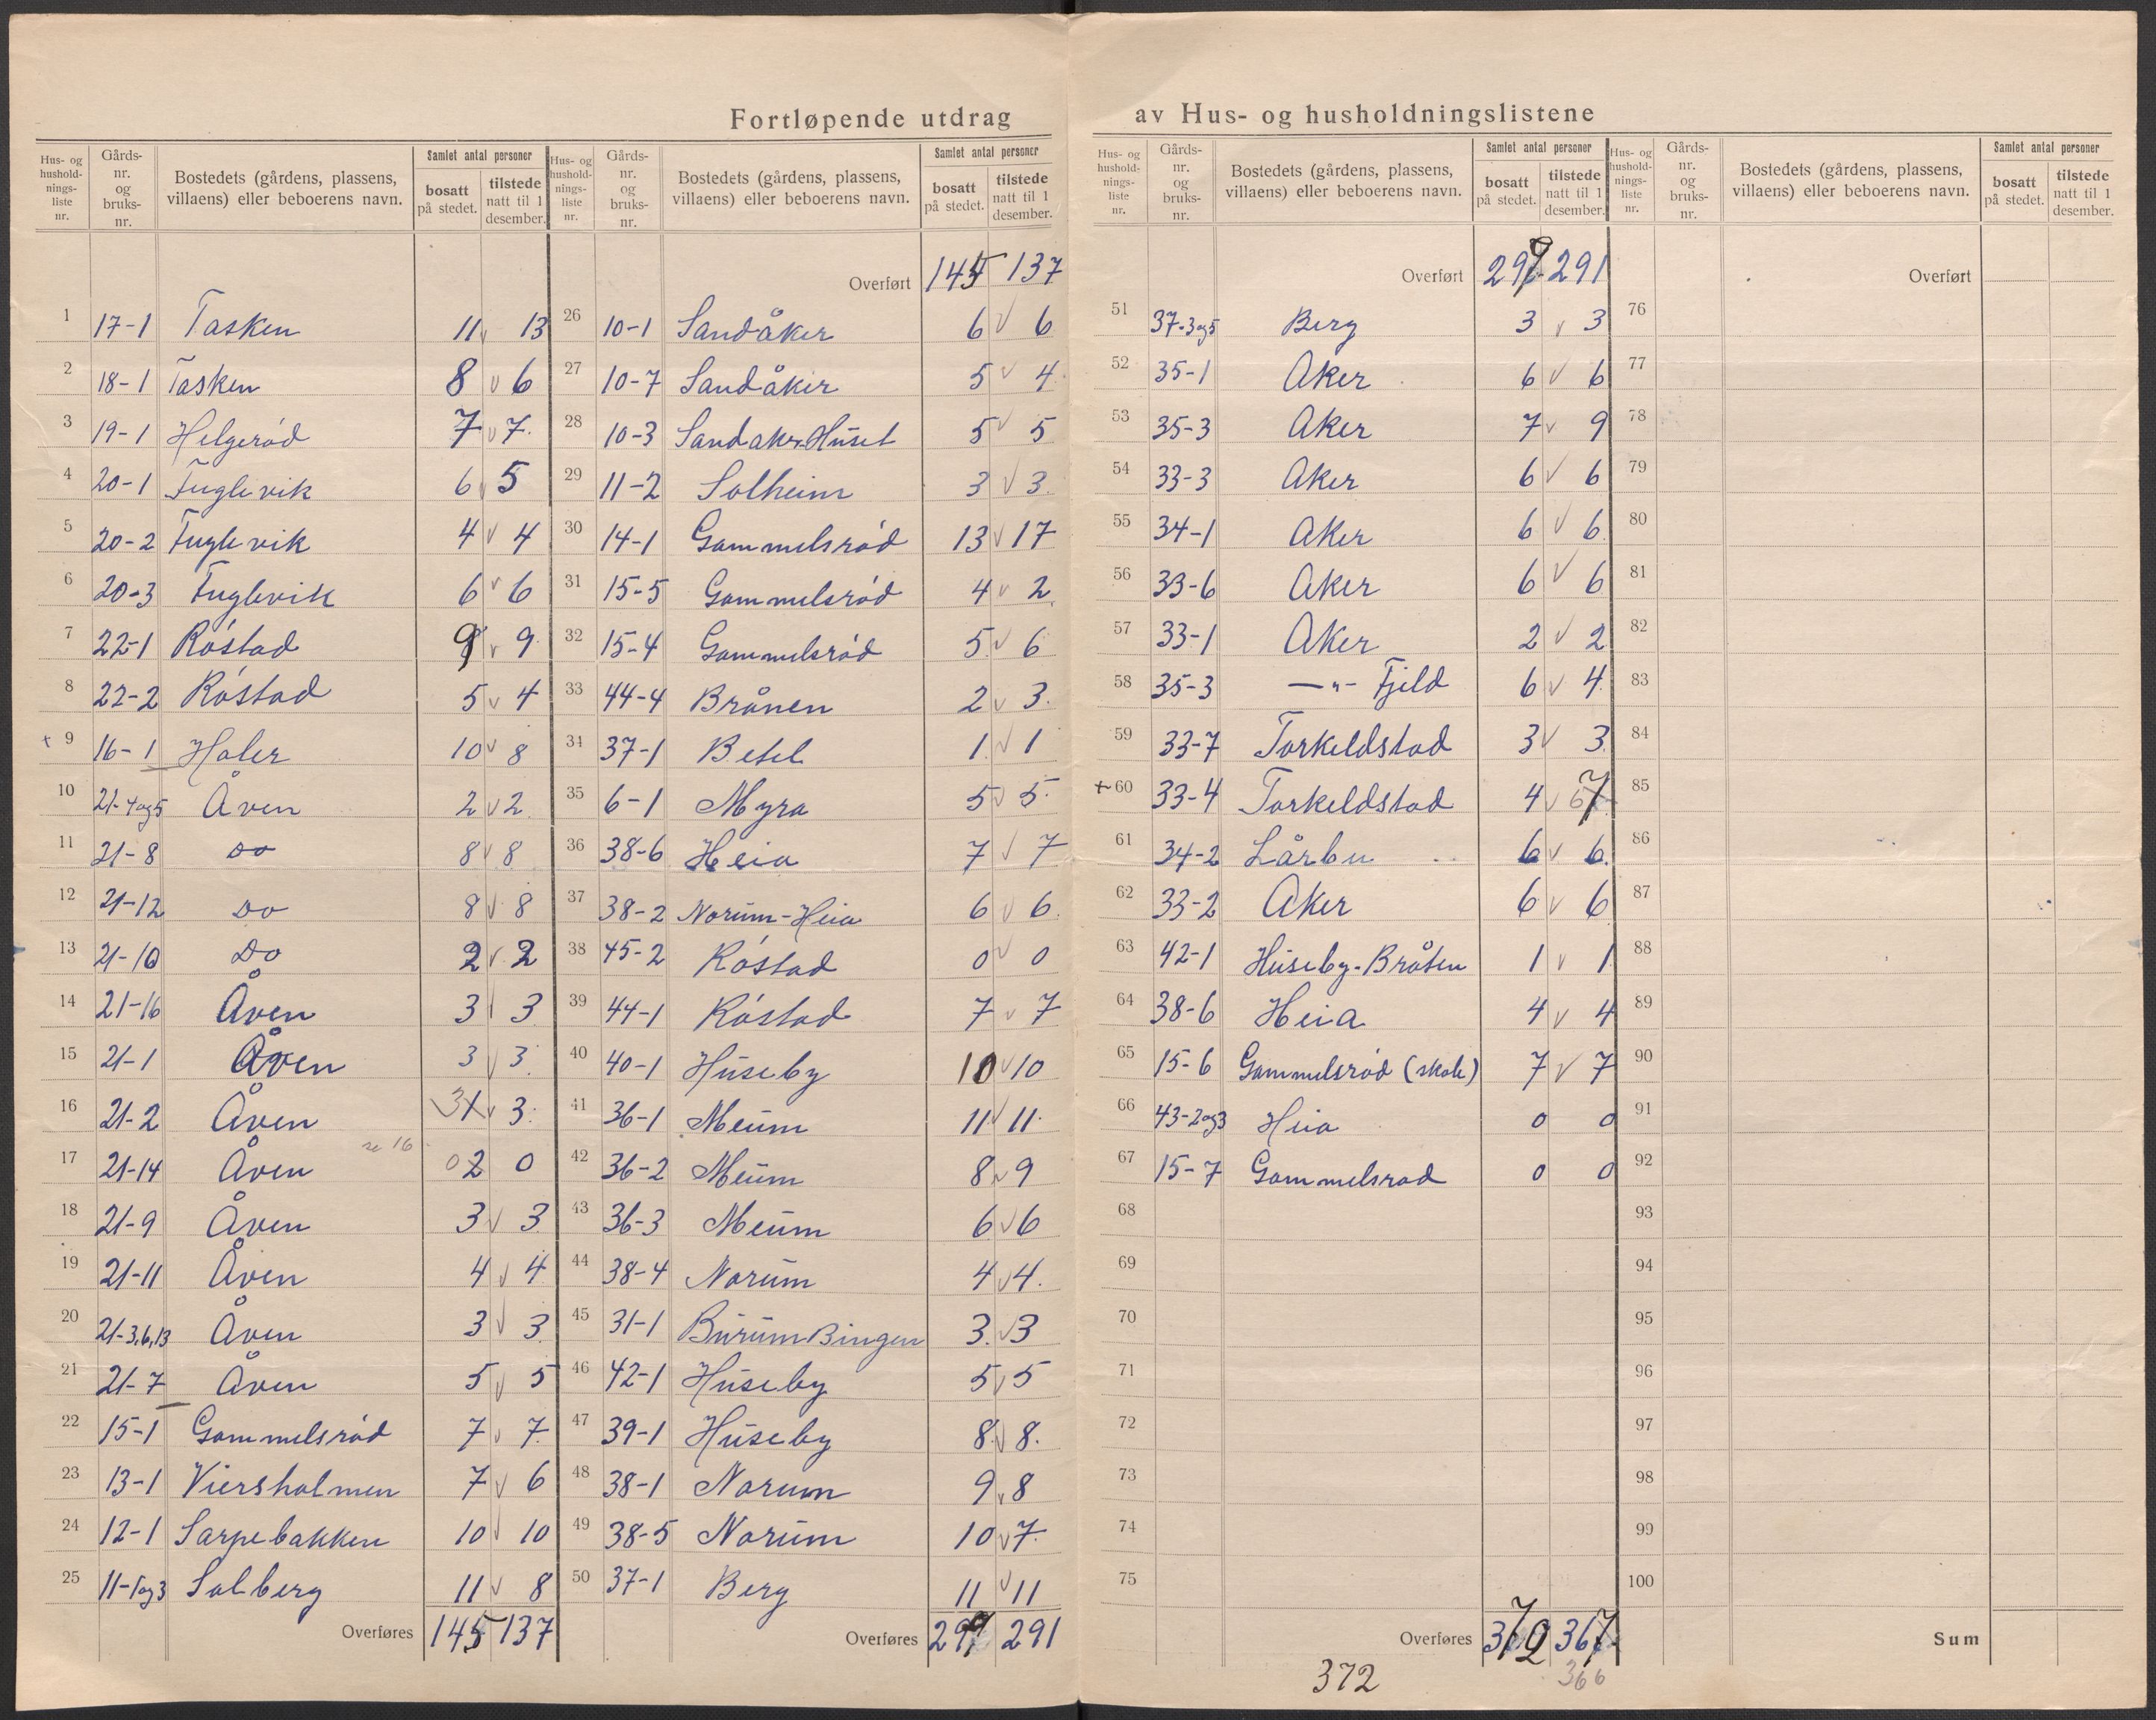 Fortløpende utdrag av Hus- og husholdningslistene
Hus- og husholdningsliste nr. | Gårds-nr. og bruks-nr. | Bostedets (gårdens, plassens, villaens) eller beboerens navn. | Samlet antal personer: bosatt på stedet. | tilstede natt til 1 desember.
1 17-1 Tasken 11 v 13
2 18-1 Tasken 8 v 6
3 19-1 Helgerød 7 v 7.
4 20-1 Fuglevik 6 v 5
5 20-2 Fuglevik 4 v 4
6 20-3 Fuglevik 6 v 6
7 22-1 Róstad 9 v 9.
8 22-2 Róstad 5 v 4
+ 9 16-1 Haler 10 v 8
10 21-4og5 Åven 2 v 2.
11 21-8 Do 8 v 8
12 21-12 Do 8 v 8
13 21-10 Do 2 v 2
14 21-16 Åven 3 3
15 21-1 Åven 3 v 3.
16 21-2 Åven 3 v 3.
se 16
17 21-14 Åven 0 2 0
18 21-9 Åven 3 v 3
19 21-11 Åven 4 v 4
20 21-3,6,13 Åven 3 v 3
21 21-7 Åven 5 v 5
22 15-1 Gammelsród 7 v 7.
23 13-1 Viersholmen 7 v 6
24 12-1 Sarpebakken 10 v 10
25 11-1og3 Solberg 11 v 8
Overføres 145 137
Hus- og husholdningsliste nr. | Gårds-nr. og bruks-nr. | Bostedets (gårdens, plassens, villaens) eller beboerens navn. | Samlet antal personer: bosatt på stedet. | tilstede natt til 1 desember.
Overført 145 137
26 10-1 Sandåker 6 v 6
27 10-7 Sandåker 5 v 4
28 10-3 Sandakr.Huset 5 v 5
29 11-2 Solheim 3 v 3.
30 14-1 Gammelsród 13 v 17
31 15-5 Gammelsród 4 v 2
32 15-4 Gammelsród 5 v 6
33 44-4 Brånen 2 v 3.
34 37-1 Betel 1 v 1
35 6-1 Myra 5 v 5.
36 38-6 Heia 7 v 7
37 38-2 Norum-Heia 6 v 6.
38 45-2 Róstad 0 v 0
39 44-1 Róstad 7 v 7
40 40-1 Huseby 10 v 10
41 36-1 Meum 11 v 11.
42 36-2 Meum 8 v 9
43 36-3 Meum 6 v 6
44 38-4 Norum 4 v 4.
45 31-1 Burum Bingen 3. v 3
46 42-1 Huseby 5 v 5
47 39-1 Huseby 8. v 8.
48 38-1 Norum 9 v 8
49 38-5 Norum 10 v 7.
50 37-1 Berg 11 v 11
Overføres 299 291
Hus- og husholdningsliste nr. | Gårds-nr. og bruks-nr. | Bostedets (gårdens, plassens, villaens) eller beboerens navn. | Samlet antal personer: bosatt på stedet. | tilstede natt til 1 desember.
Overført 299 291
51 37-3og5 Berg 3 v 3
52 35-1 Aker 6 v 6
53 35-3 Aker 7 v 9
54 33-3 Aker 6 v 6
55 34-1 Aker 6 v 6.
56 33-6 Aker 6 v 6
57 33-1 Aker 2 v 2
58 35-3 —"- Fjeld 6 v 4.
59 33-7 Torkeldstad 3 v 3.
+ 60 33-4 Torkeldstad 4 v 7
61 34-2 Lårbu 6 v 6.
62 33-2 Aker 6 v 6
63 42-1 Huseby-Bråten 1 v 1
64 38-6 Heia 4 v 4
65 15-6 Gammelsród (skole) 7 v 7
66 43-2og3 Heia 0 0
67 15-7 Gammelsrod 0 0
68
69
70
71
72
73
74
75
Overføres 372 367
372 366
Hus- og husholdningsliste nr. | Gårds-nr. og bruks-nr. | Bostedets (gårdens, plassens, villaens) eller beboerens navn. | Samlet antal personer: bosatt på stedet. | tilstede natt til 1 desember.
Overført
76
77
78
79
80
81
82
83
84
85
86
87
88
89
90
91
92
93
94
95
96
97
98
99
100
Sum